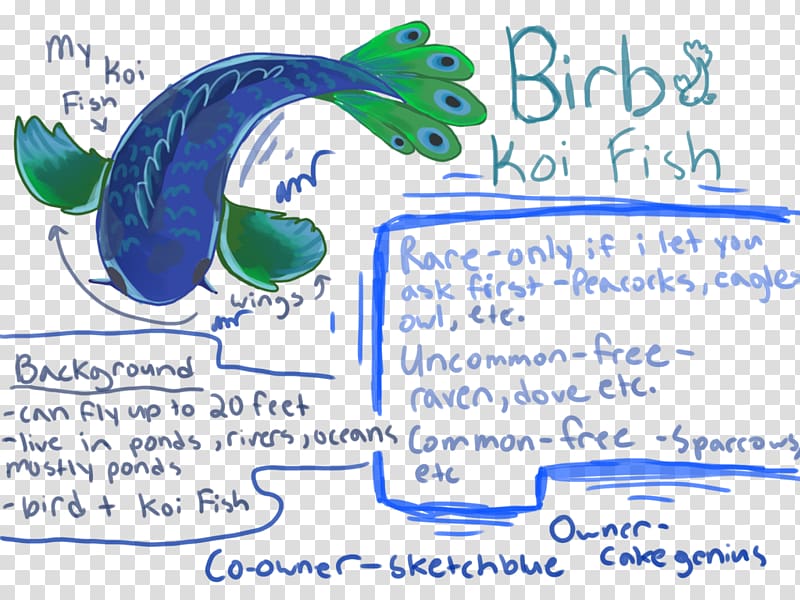 My
Koi
Fish
Birb
Koi Fish
wings
Rare-only if i let you
ask first-Peacocks, eagles
owl, etc.
Uncommon-free-
raven, dove etc.
Common-free -Sparrows,
etc
Background
-can fly up to 20 feet
-live in ponds, rivers, oceans
mostly ponds
-bird + Koi Fish
Owner-
Cakegenius
Co-owner-sketchblue